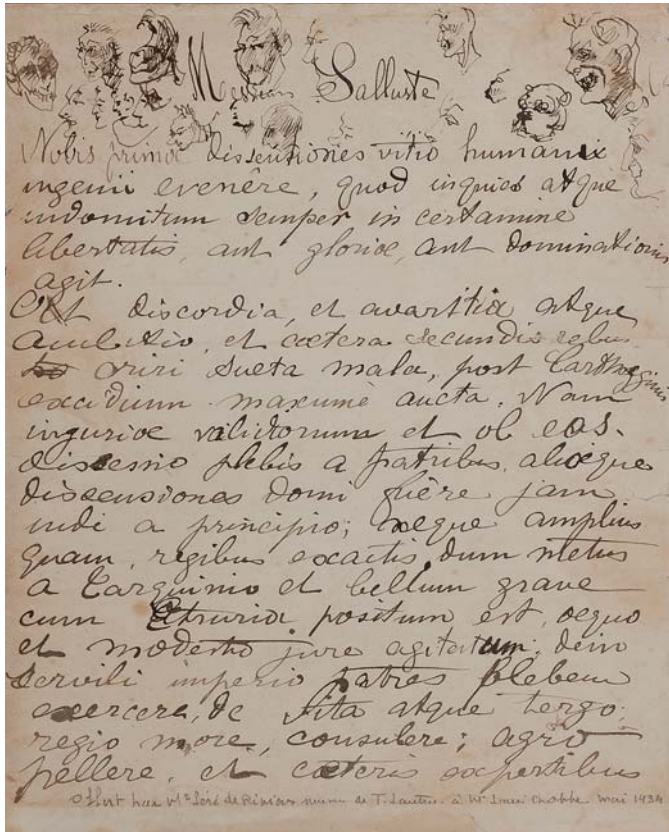 Messieurs Salluste
Nobis primae dissensiones vitio humanix
ingenii evenêre, quod inquies atque
indomitum semper in certamine
libertatis, aut glorioe, aut dominationis
agit.
discordia, et avaritia atque
ambitio, et coetera secundis rebus
oriri sueta mala, post Carthaginis
excidium maxumè aucta. Nam
injurioe validiorum et ob eas
discessio plebis a patribus, alioeque
dissensiones domi fuêre jam
indi a principio; neque amplius
quam, regibus exactis, dum metus
a Tarquinio et bellum grave
cum Etruria positum est, oequo
et modesto jure agitatum; dein
servili imperio patres plebem
exercere, de vita atque tergo,
regio more, consulere; agro
pellere, et coeteris expertibus
Offert par Mr José de de T. Lautrec à Mr Louis mai 1934